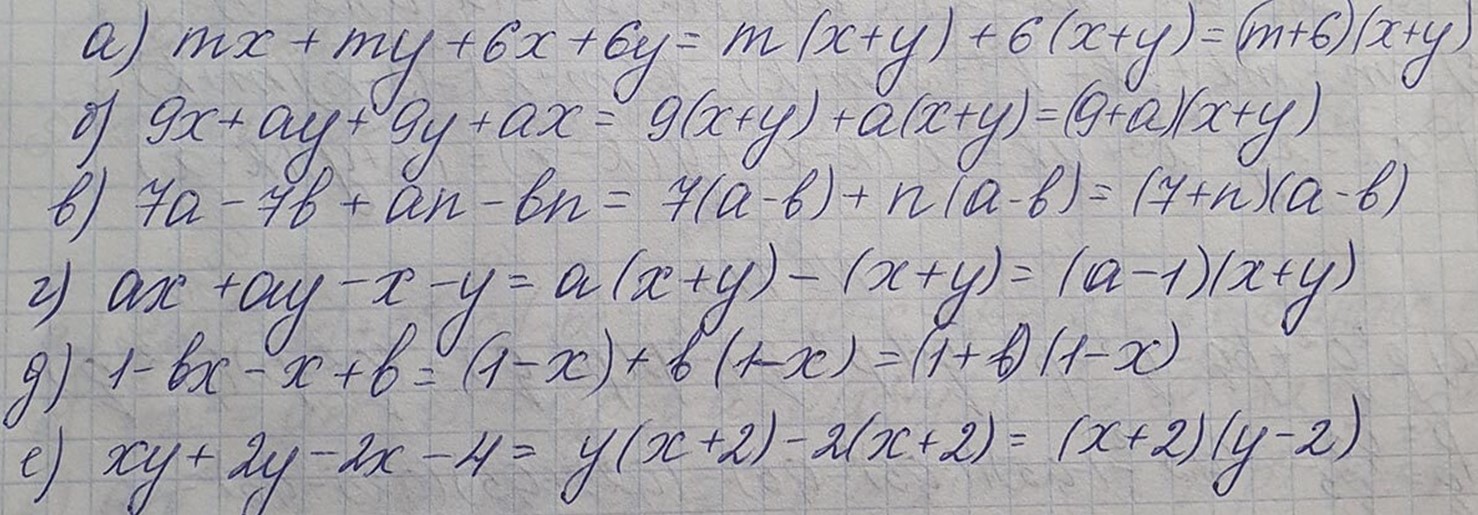 а) mx + my + 6x + 6y = m(x+y) + 6(x+y) = (m+6)(x+y)
б) 9x + ay + 9y + ax = 9(x+y) + a(x+y) = (9+a)(x+y)
в) 7a - 7b + an - bn = 7(a-b) + n(a-b) = (7+n)(a-b)
г) ax + ay - x - y = a(x+y) - (x+y) = (a-1)(x+y)
д) 1 - bx - x + b = (1-x) + b(1-x) = (1+b)(1-x)
е) xy + 2y - 2x - 4 = y(x+2) - 2(x+2) = (x+2)(y-2)